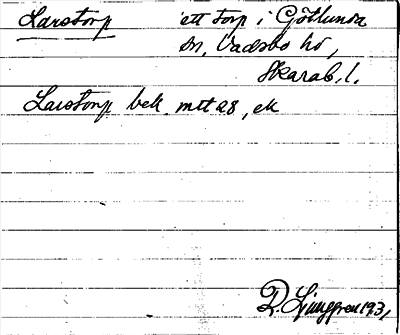 Larstorp ett torp i Götlunda
sn, Vadsbo hd,
Skarab. l.
Larstorp bek. mtl 28, ek
R. Ljunggren 193,